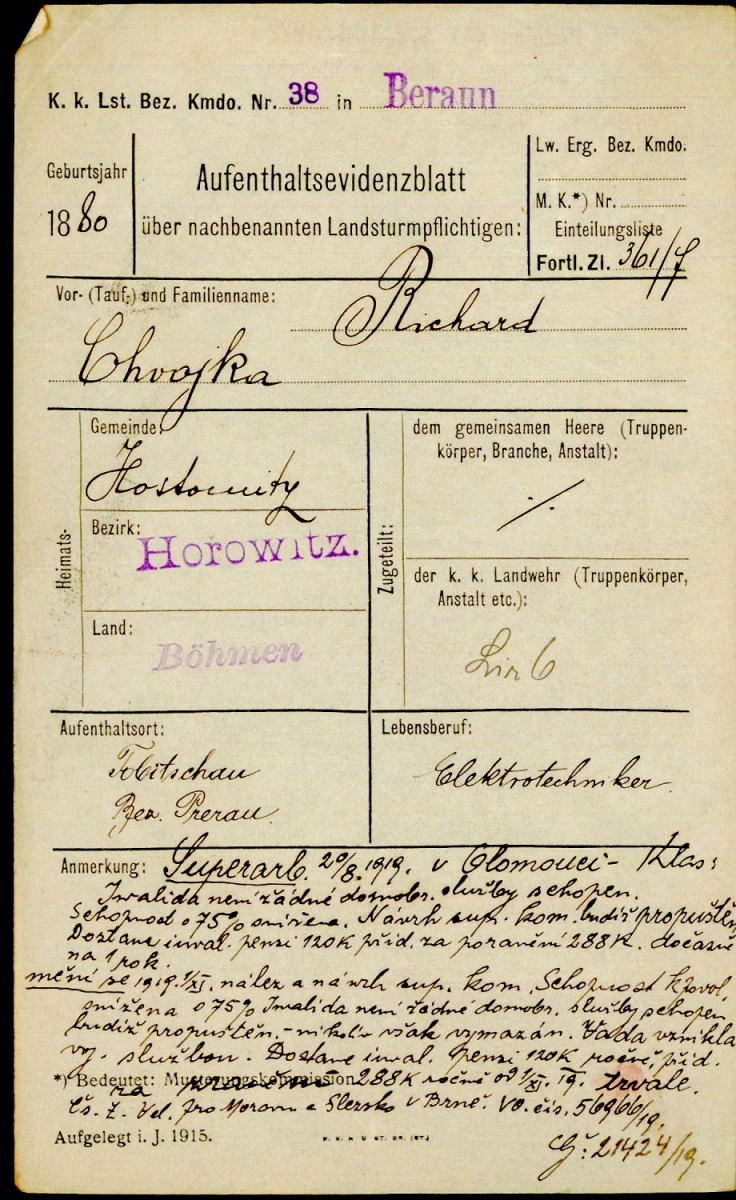 K. k. Lst. Bez. Kmdo. Nr. 38 in Beraun
Geburtsjahr
1880
Aufenthaltsevidenzblatt
über nachbenannten Landsturmpflichtigen:
Lw. Erg. Bez. Kmdo.
M. K.*) Nr.
Einteilungsliste
Fortl. Zl. 361/7
Vor- (Tauf-) und Familienname:
Richard
Chvojka
Heimats-
Gemeinde:
Hostomitz
Bezirk:
Horowitz.
Land:
Böhmen
Zugeteilt:
dem gemeinsamen Heere (Truppen-
körper, Branche, Anstalt):
./.
der k. k. Landwehr (Truppenkörper,
Anstalt etc.):
Lir 6
Aufenthaltsort:
Tobitschau
Bez. Prerau.
Lebensberuf:
Elektrotechniker.
Anmerkung: Superarb. 20/8. 1919. v Olomouci - Klas:
Invalida není žádné domobr. služby schopen.
Schopnost o 75% snížena. Návrh sup. kom. budiž propuštěn
Dostane inval. penzi 120K příd. za poranění 288K. dočasně
na 1 rok.
mění se 1919.1/XI. nález a návrh sup. kom. Schopnost k povol.
snížena o 75% Invalida není žádné domobr. služby schopen
budiž propuštěn, - nikoliv však vymazán. Vada vznikla
voj. službou. Dostane inval. penzi 120K ročně, příd.
*) Bedeutet: Musterungskommission
za poranění 288K ročně od 1/XI. 19. trvale.
Čs. Z. Vel. pro Moravu a Slezsko v Brně. VO. čís. 56966/19.
Aufgelegt i. J. 1915.
Čj: 21424/19.